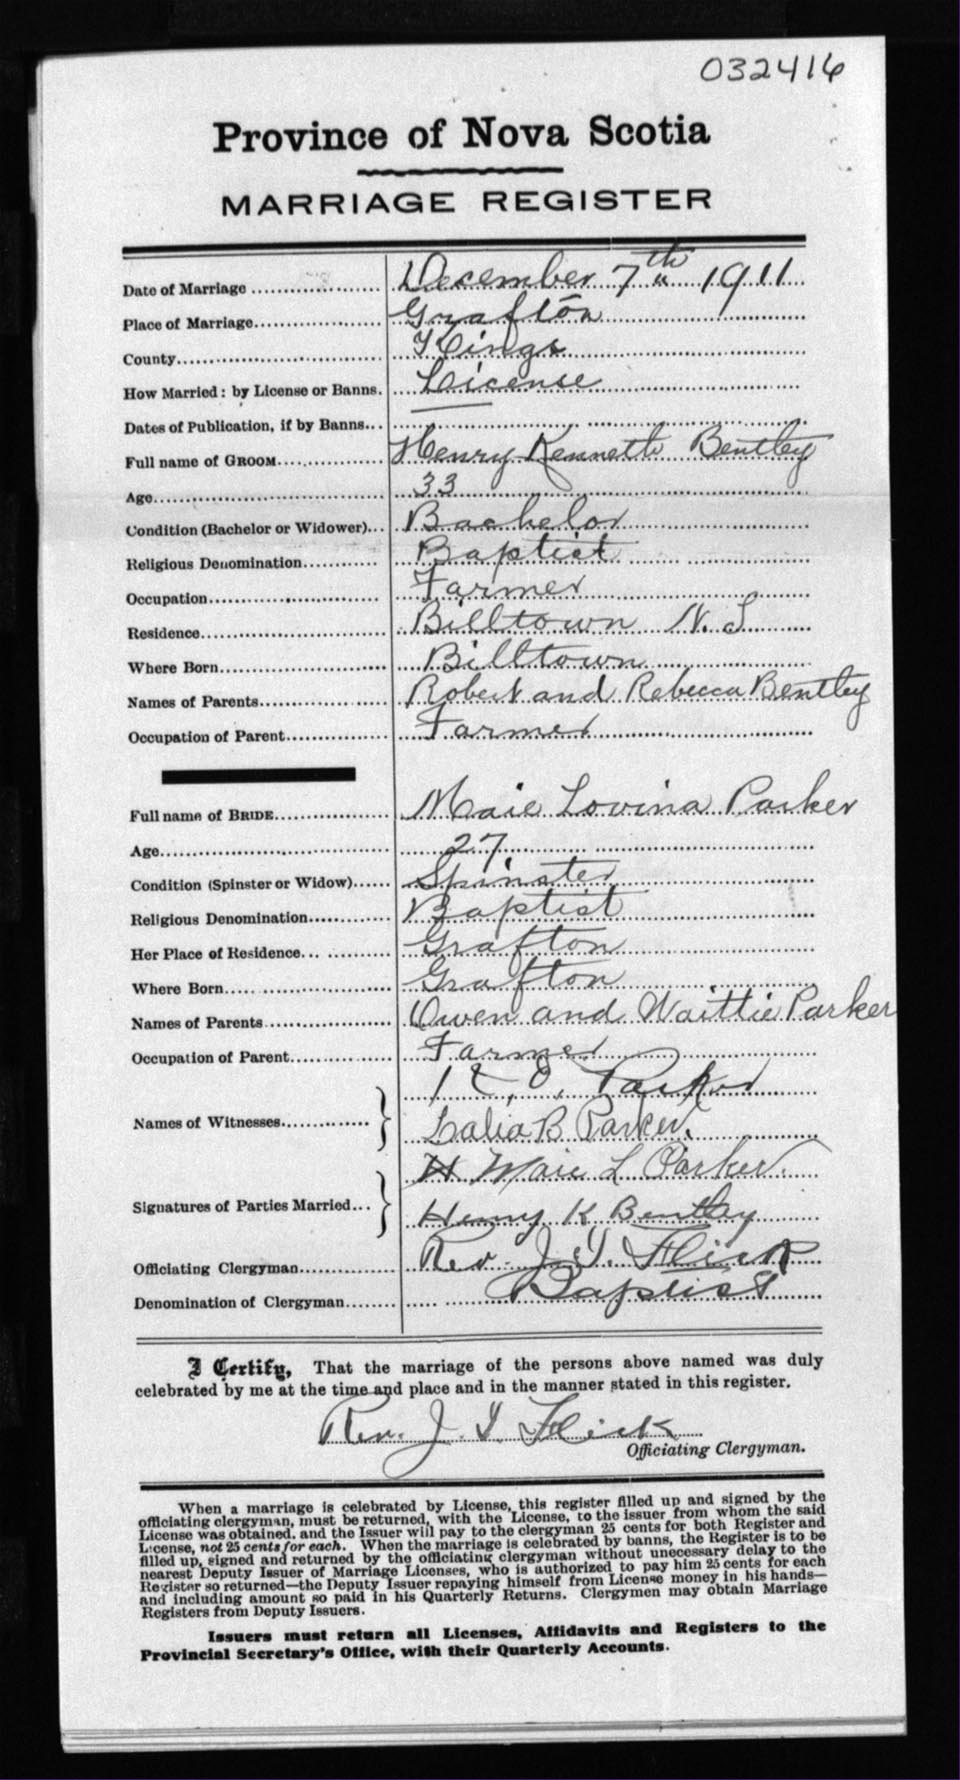 032416
Province of Nova Scotia
MARRIAGE REGISTER
Date of Marriage December 7th 1911
Place of Marriage Grafton
County Kings
How Married: by License or Banns. License
Dates of Publication, if by Banns
Full name of GROOM Henry Kenneth Bentley
Age 33
Condition (Bachelor or Widower) Bachelor
Religious Denomination Baptist
Occupation Farmer
Residence Billtown N.S
Where Born Billtown
Names of Parents Robert and Rebecca Bentley
Occupation of Parent Farmer
Full name of BRIDE Maie Lovina Parker
Age 27
Condition (Spinster or Widow) Spinster
Religious Denomination Baptist
Her Place of Residence Grafton
Where Born Grafton
Names of Parents Owen and Waittie Parker
Occupation of Parent Farmer
O. Parker
Names of Witnesses
Lalia B Parker.
H Maie L Parker.
Signatures of Parties Married
Henry K Bentley
Officiating Clergyman Rev. J. Flick
Denomination of Clergyman Baptist
I Certify, That the marriage of the persons above named was duly
celebrated by me at the time and place and in the manner stated in this register.
Rev. J. Flick
Officiating Clergyman.
When a marriage is celebrated by License, this register filled up and signed by the
officiating clergyman, must be returned, with the License, to the issuer from whom the said
License was obtained, and the Issuer will pay to the clergyman 25 cents for both Register and
License, not 25 cents for each. When the marriage is celebrated by banns, the Register is to be
filled up, signed and returned by the officiating clergyman without unnecessary delay to the
nearest Deputy Issuer of Marriage Licenses, who is authorized to pay him 25 cents for each
Register so returned—the Deputy Issuer repaying himself from License money in his hands—
and including amount so paid in his Quarterly Returns. Clergymen may obtain Marriage
Registers from Deputy Issuers.
Issuers must return all Licenses, Affidavits and Registers to the
Provincial Secretary's Office, with their Quarterly Accounts.